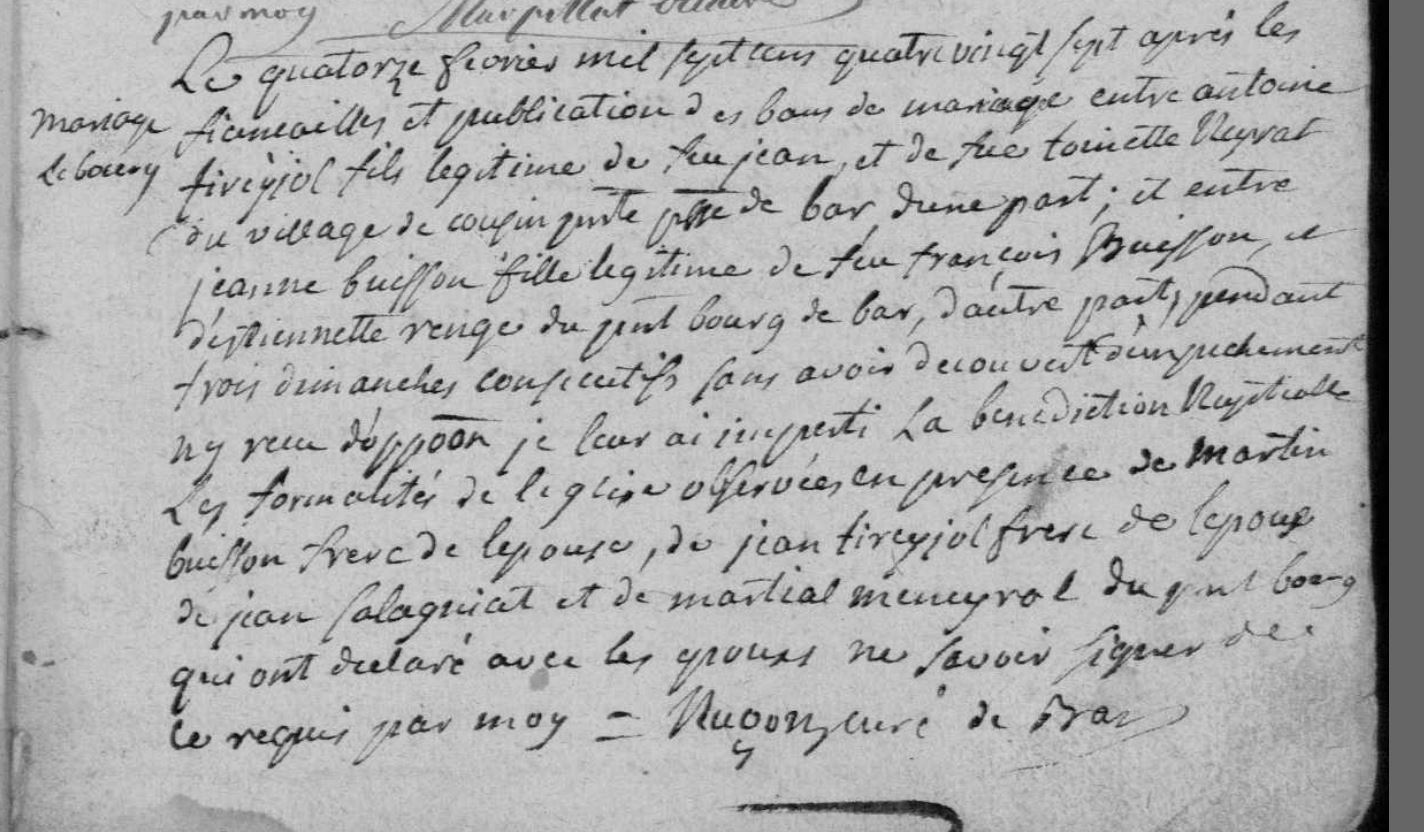 par moy
Le quatorze fevrier mil sept cens quatre vingt sept après les
mariage
Le bourg
fiancailles et publication des bans de mariage entre antoine
tireyjol fils legitime de feu jean, et de feue toinette Neyrat
du village de coupin prste psse de bar, dune part; et entre
jeanne buisson fille legitime de feu françois Buisson, et
d'estiennette renge du prnt bourg de bar, d'autre part, pendant
trois dimanches consecutifs sans avoir decouvert d'empechement
ny reçu d'oppoon je leur ai imparti La benediction Nuptialle
Les formalités de l'eglise observées en presence de martin
buisson frere de lepouse, de jean tireyjol frere de lepoux
de jean salagniat et de martial meneyrol du prnt bourg
qui ont declaré avec les epoux ne savoir signer de
ce requis par moy = curé de Bar